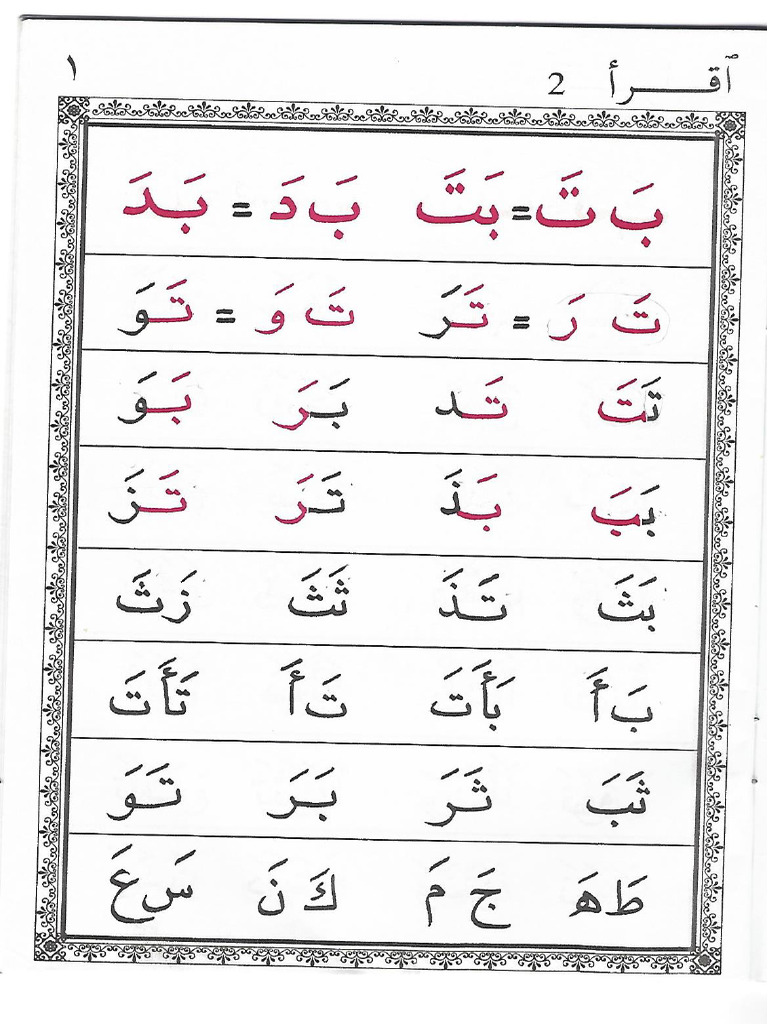 ٱقــرأ 2 ١
بَ تَ = بَتَ بَ دَ = بَدَ
تَ رَ = تَرَ تَ وَ = تَوَ
تَتَ تَـد بَرَ بَوَ
بَبَ بَذَ تَرَ تَزَ
بَثَ تَذَ ثَثَ زَثَ
بَ أَ بَأَتَ تَ أَ تَأَتَ
ثَبَ ثَرَ بَرَ تَوَ
طَ هَ جَ مَ كَ نَ سَ عَ